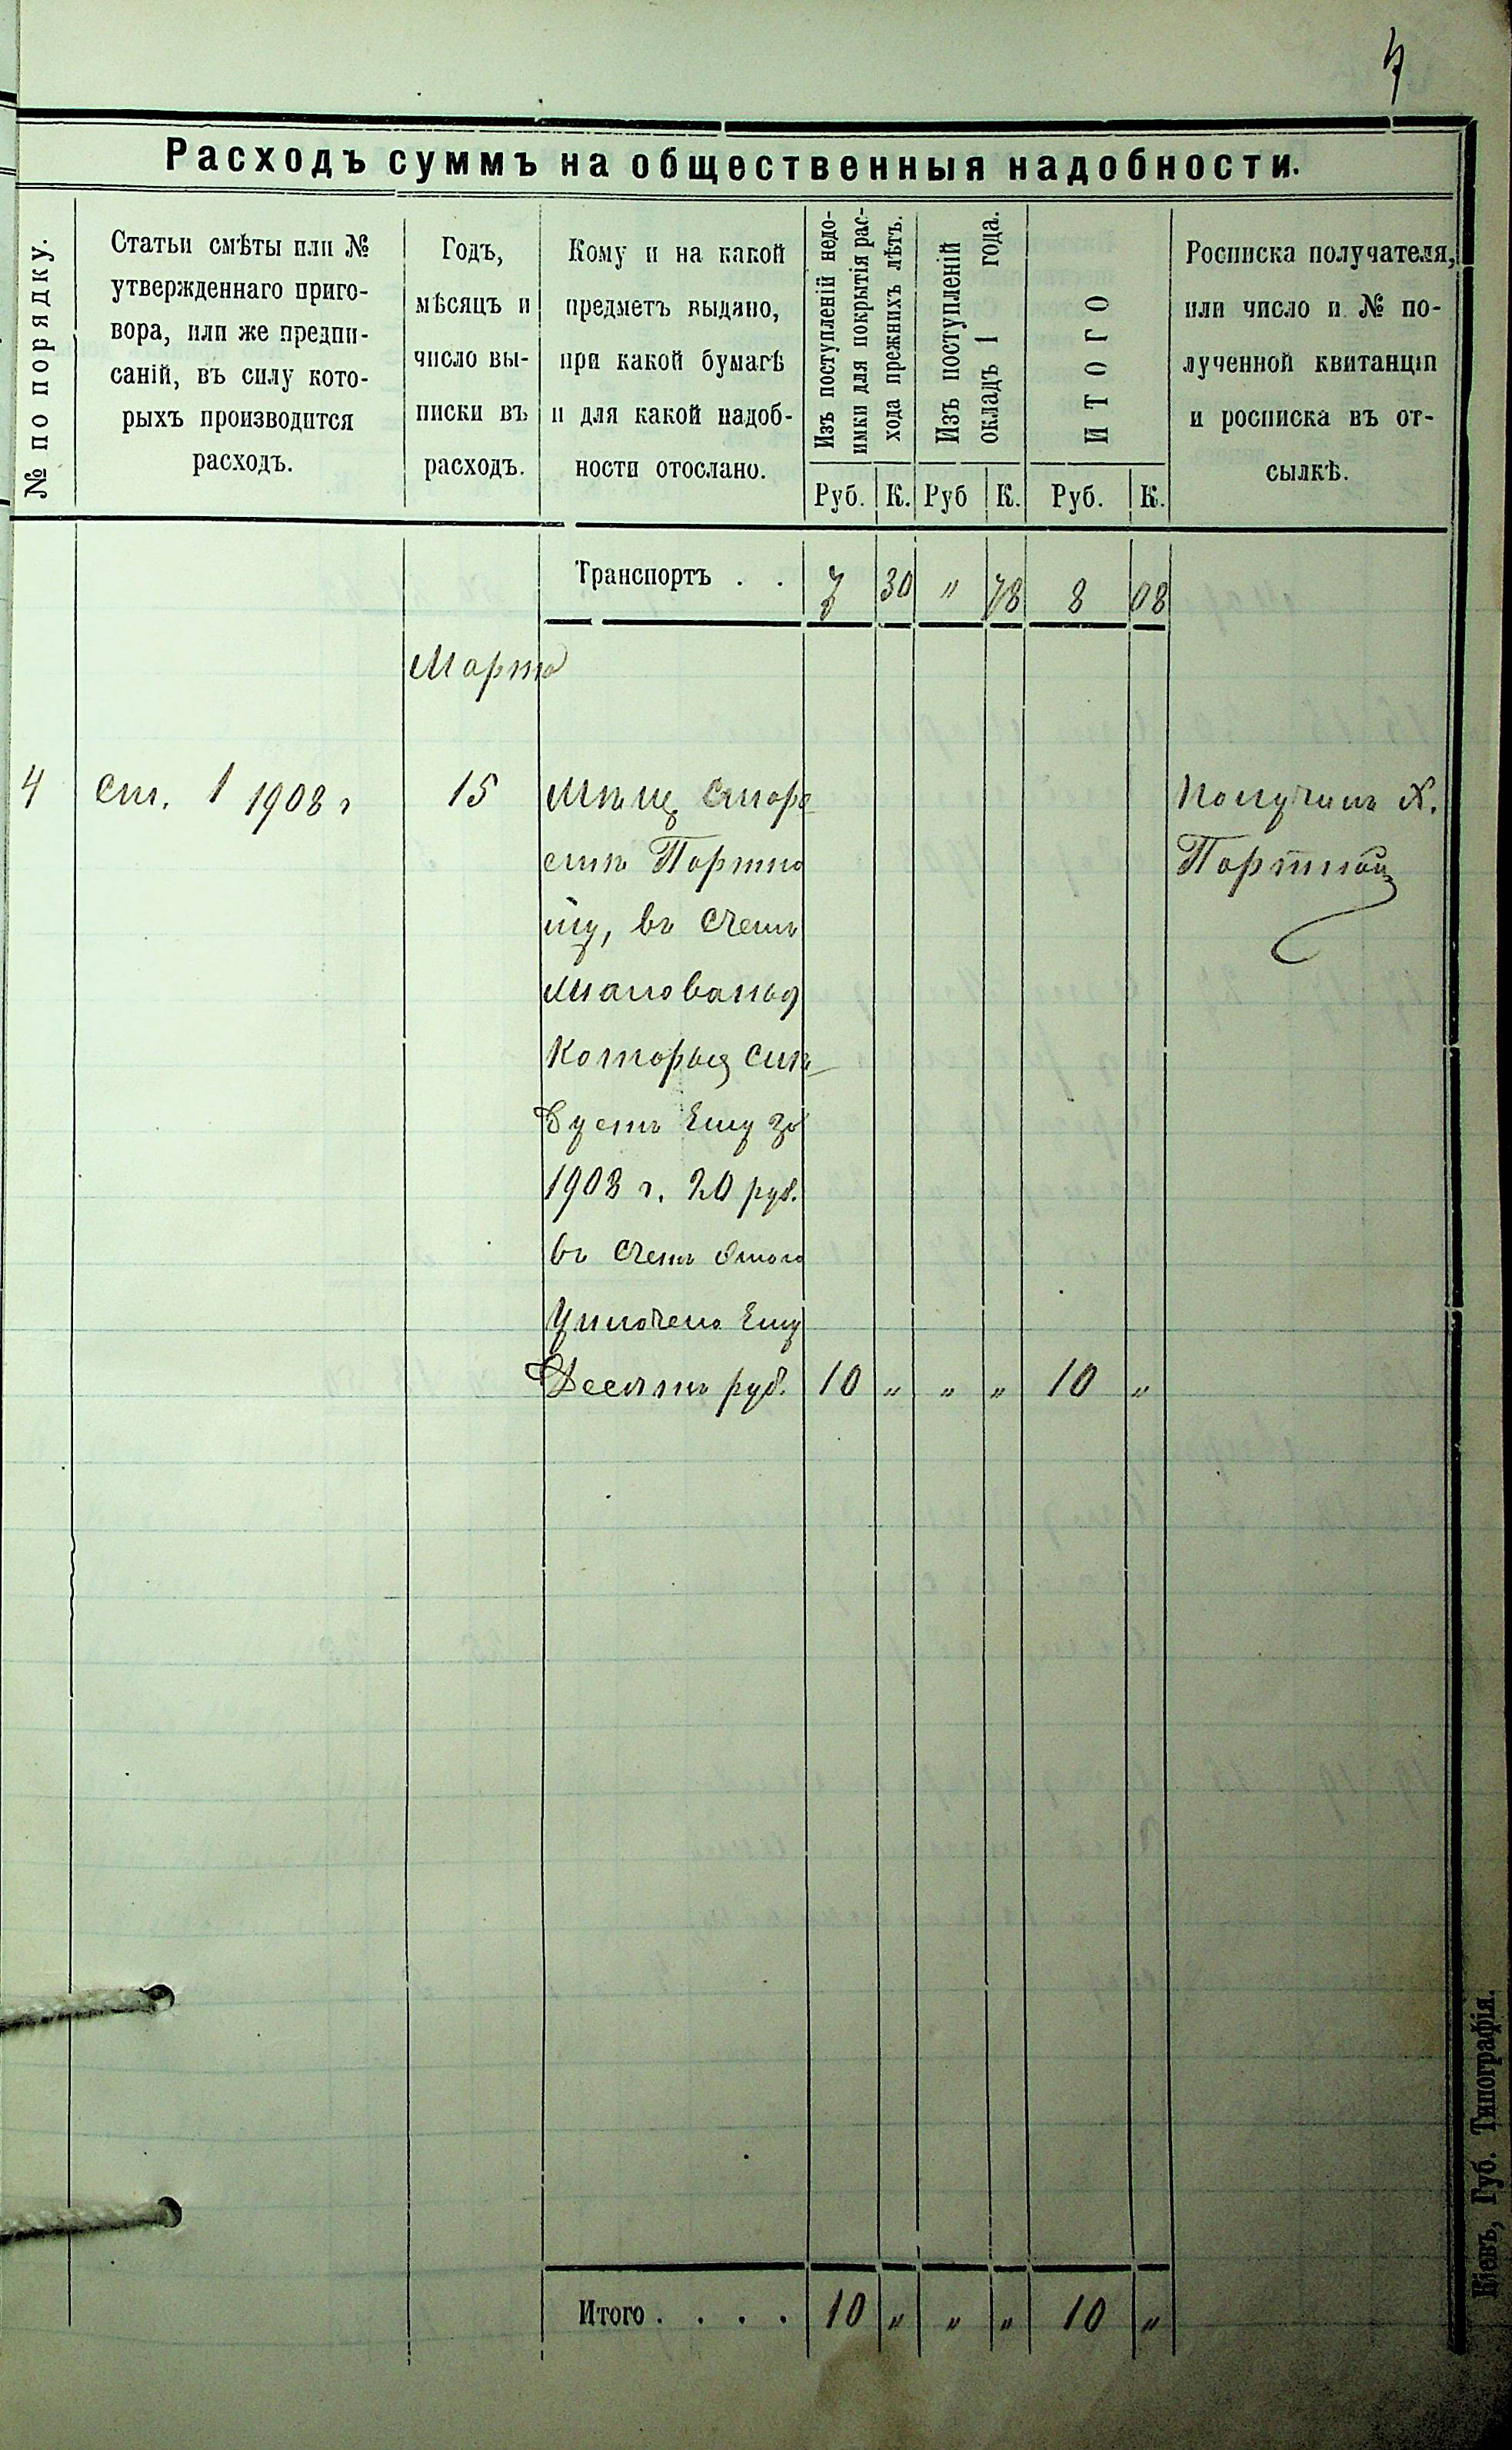 4
Расходъ суммъ на общественныя надобности.
№ по порядку.
Статьи смѣты или №
утвержденнаго приго-
вора, или же предпи-
саній, въ силу кото-
рыхъ производится
расходъ.
Годъ,
мѣсяцъ и
число вы-
писки въ
расходъ.
Кому и на какой
предметъ выдано,
при какой бумагѣ
и для какой надоб-
ности отослано.
Изъ поступленій недо-
имки для покрытія рас-
хода прежнихъ лѣтъ.
Изъ поступленій
окладъ 1 года.
ИТОГО
Росписка получателя,
или число и № по-
лученной квитанціи
и росписка въ от-
сылкѣ.
Руб. К. Руб К. Руб. К.
Транспортъ . . 7 30 " 78 8 08
Марта
4 ст. 1 1908 г 15 Мѣщ старо Получилъ Х.
стѣ Портно Портной
му, въ счетъ
жалованья
которыя слѣ
дуетъ Ему за
1908 г. 20 руб.
въ счетъ этого
Уплочено Ему
Десять руб. 10 " " " 10 "
Итого . . . . 10 " " " 10 "
Кіевъ, Губ. Типографія.